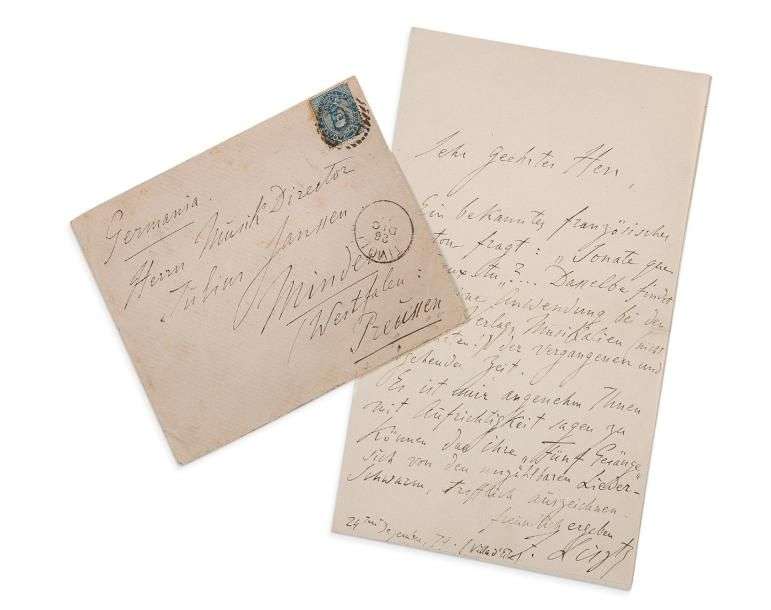 Germania.
Herrn Musik Director
Julius Janssen.
Minden
(Westfalen:
Preussen
TIVOLI
Sehr geehrter Herr,
Ein bekannter französischer
fragt: "Sonate que
veux tu"?... Dasselbe findet
eine Anwendung bei den
Verlags Musikalien (meist
der vergangenen und
Zeit.
Es ist mir angenehm Ihnen
mit Aufrichtigkeit sagen zu
können das ihre "Fünf Gesänge"
sich von den unzählbaren Lieder-
Schwarm, trefflich auszeichnen.
freundlich ergeben
24ten Dezember, 79. (Villa d'Este) F. Liszt